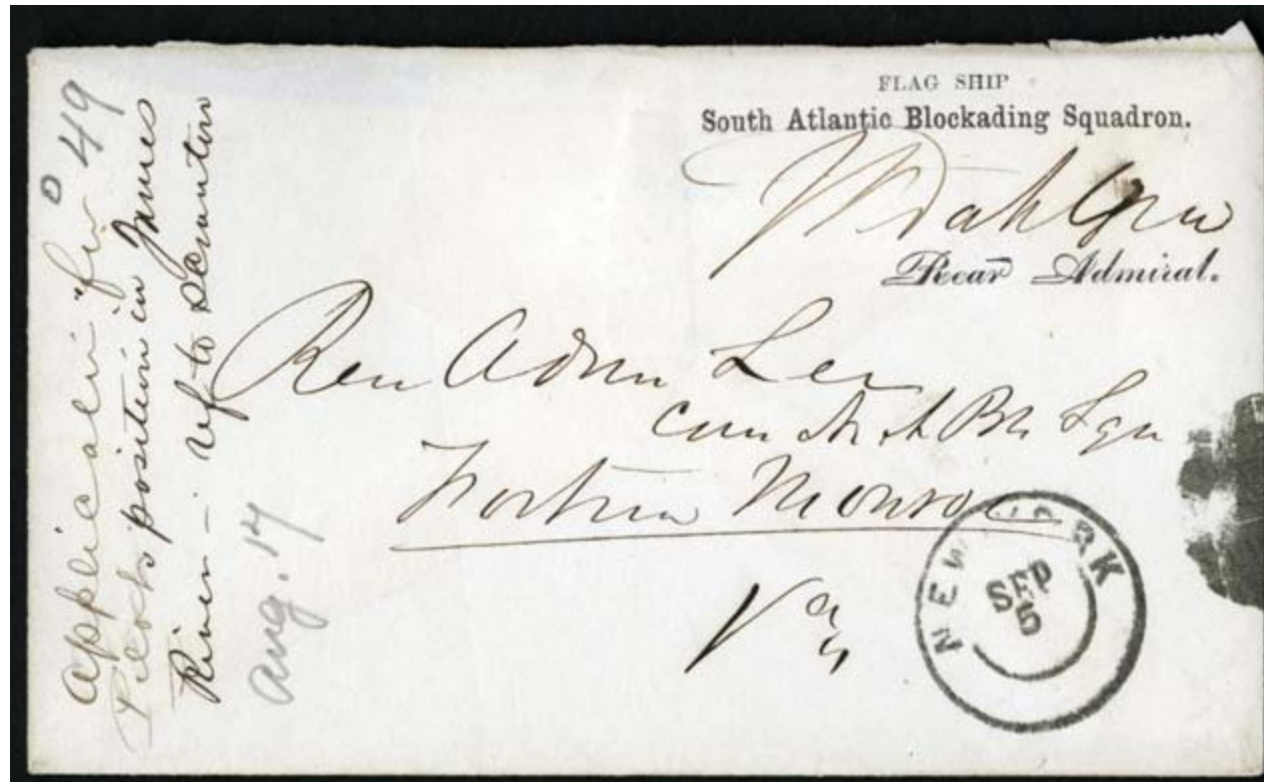 FLAG SHIP
South Atlantic Blockading Squadron.
J A Dahlgren
Rear Admiral.
Rear Adm Lee
Com N. A Bk Sqn
Fortress Monroe
Va
NEW YORK
SEP
5
49
Application for
Pilot's position in James
River — ref to Scranton
Aug. 17